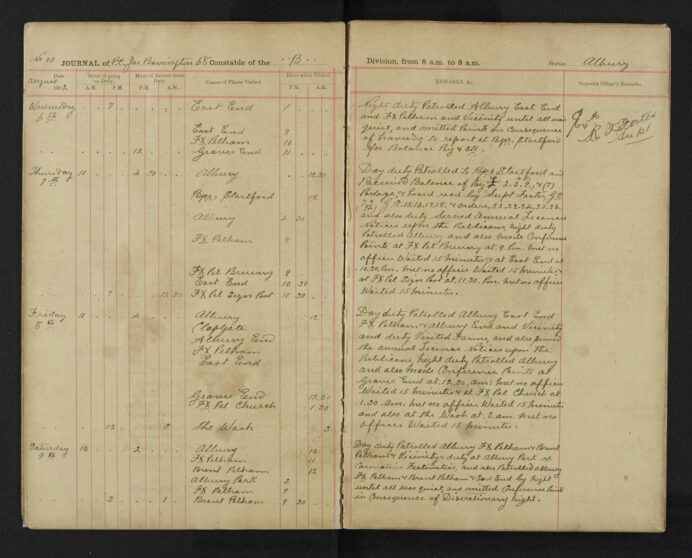 No 13 JOURNAL of P.C. Jas Bevington 68 Constable of the B
Date. Hour of going on Duty. Hour of Return from Duty. Names of Places Visited. Hour when Visited.
August 1902 A.M. P.M. A.M. P.M. A.M. P.M.
Wednesday 7 East End 1
6th
East End 9
FX Pelham 10
12 Graves End 11
Thursday 10 4 30 Albury 10.30
7th
Bps, Stortford 12
Albury 4 30
FX Pelham 8
FX Pel Brewery 9
East End 10 30
12 30 FX Pel Signs Post 11 30
Friday 11 4 Albury 12
8th Clapgate
Albury End
FX Pelham
East End
Graves End 12.30
FX Pel Church 1.30
12 3 The Wash 3
Saturday 10 2 Albury 10
9th FX Pelham 11
Brent Pelham 12
Albury Park 2
FX Pelham 9
3 1 Brent Pelham 9 30
Division, from 8 a.m. to 8 a.m. Station Albury
REMARKS, &c. Superior Officer's Remarks.
Night duty Patrolled Albury East End
and FX Pelham and Vicinity until all was
quiet, and omitted Points in Consequence
of having to report at Bps, Stortford
for Balance Pay & etc.
Day duty Patrolled to Bps Stortford and
Received Balance of Pay £ 2.2.9,
Postage & heard read by Supt Foster, G.O
and also duty Served Annual Licence
Notices upon the Publicans, night duty
Patrolled Albury and also made Conference
Points, at FX Pel Brewery at 9. Pm. Met no
officer Waited 15 minutes & at East End at
10.30. Pm. Met no officer Waited 15 minutes &
at FX Pel Signs Post at 11.30. Pm. Met no officer
Waited 15 minutes.
Day duty Patrolled Albury East End
FX Pelham & Albury End and Vicinity
and duty Visited Farms, and also served
the annual Licence Notices upon the
Publicans, Night duty Patrolled Albury
and also Made Conference Points at
Graves End at 12.30 am. Met no officer
Waited 15 minutes & at FX Pel Church at
1.30. am. Met no officer Waited 15 minutes
and also at the Wash at 3. am. Met no
officer Waited 15 minutes.
Day duty Patrolled Albury FX Pelham & Brent
Pelham & Vicinity & duty at Albury Park at
Coronation Festivities, and also Patrolled Albury
FX Pelham & Brent Pelham & East End by Night
until all was quiet, and omitted Conference Points
in Consequence of Discretionary Night.